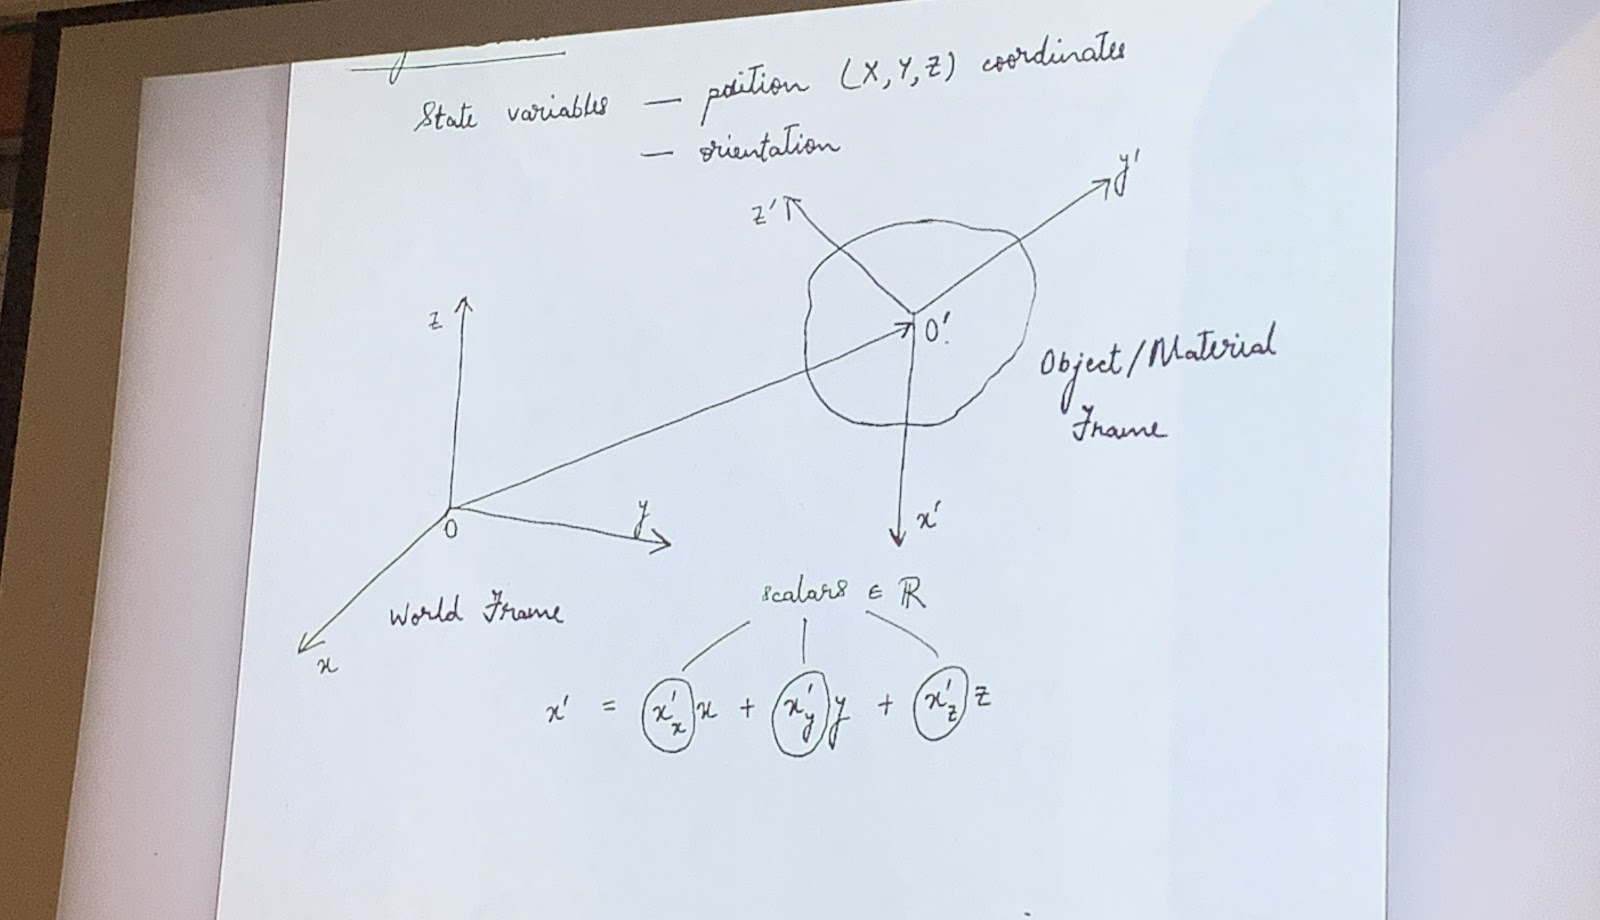 State variables — position (X, Y, Z) coordinates
— orientation
z' y'
z
O'
Object/Material
Frame
y
O
x'
World Frame
x
scalars ∈ ℝ
x' = x'ₓ x + x'_y y + x'_z z